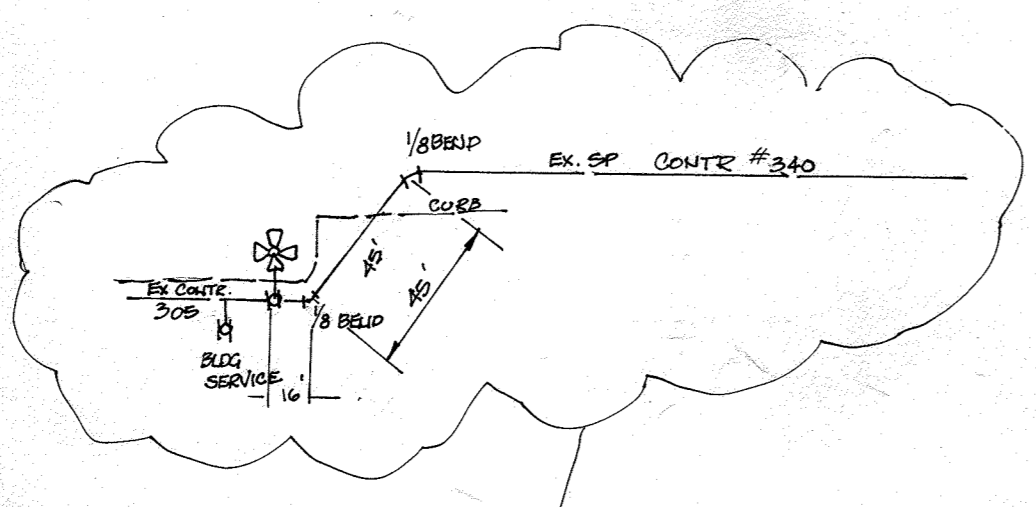 1/8 BEND
EX. SP CONTR #340
CURB
45'
45'
EX CONTR.
305
1/8 BEND
BLDG
SERVICE
16'